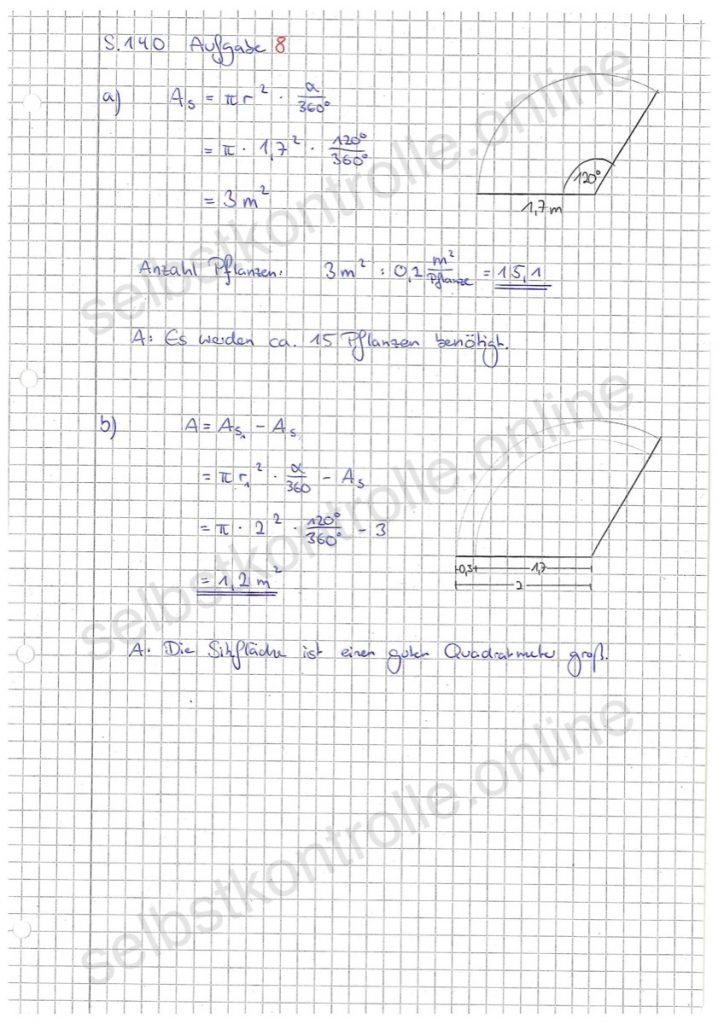 S. 140 Aufgabe 8
a) A_s = π r² · α/360°
= π · 1,7² · 120°/360°
= 3 m²
120°
1,7 m
Anzahl Pflanzen: 3 m² : 0,2 m²/Pflanze = 15,1
A: Es werden ca. 15 Pflanzen benötigt.
b) A = A_s. - A_s
= π r₁² · α/360 - A_s
= π · 2² · 120°/360° - 3
= 1,2 m²
0,3 1,7
2
A. Die Sitzfläche ist einen guten Quadratmeter groß.
selbstkontrolle.online
selbstkontrolle.online
selbstkontrolle.online